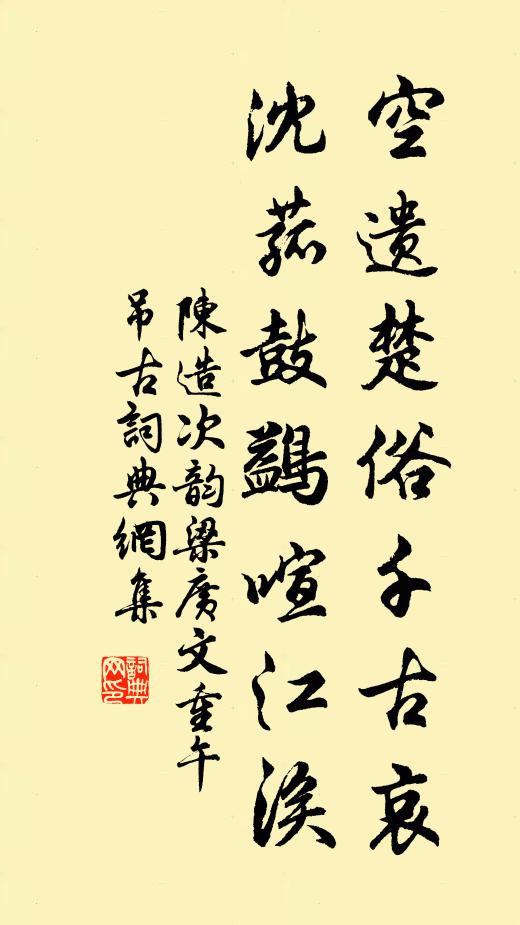 空遗楚俗千古哀
沈菰鼓鷁喧江涘
陳造次韵梁廣文重午
吊古詞典網集
詞典网印